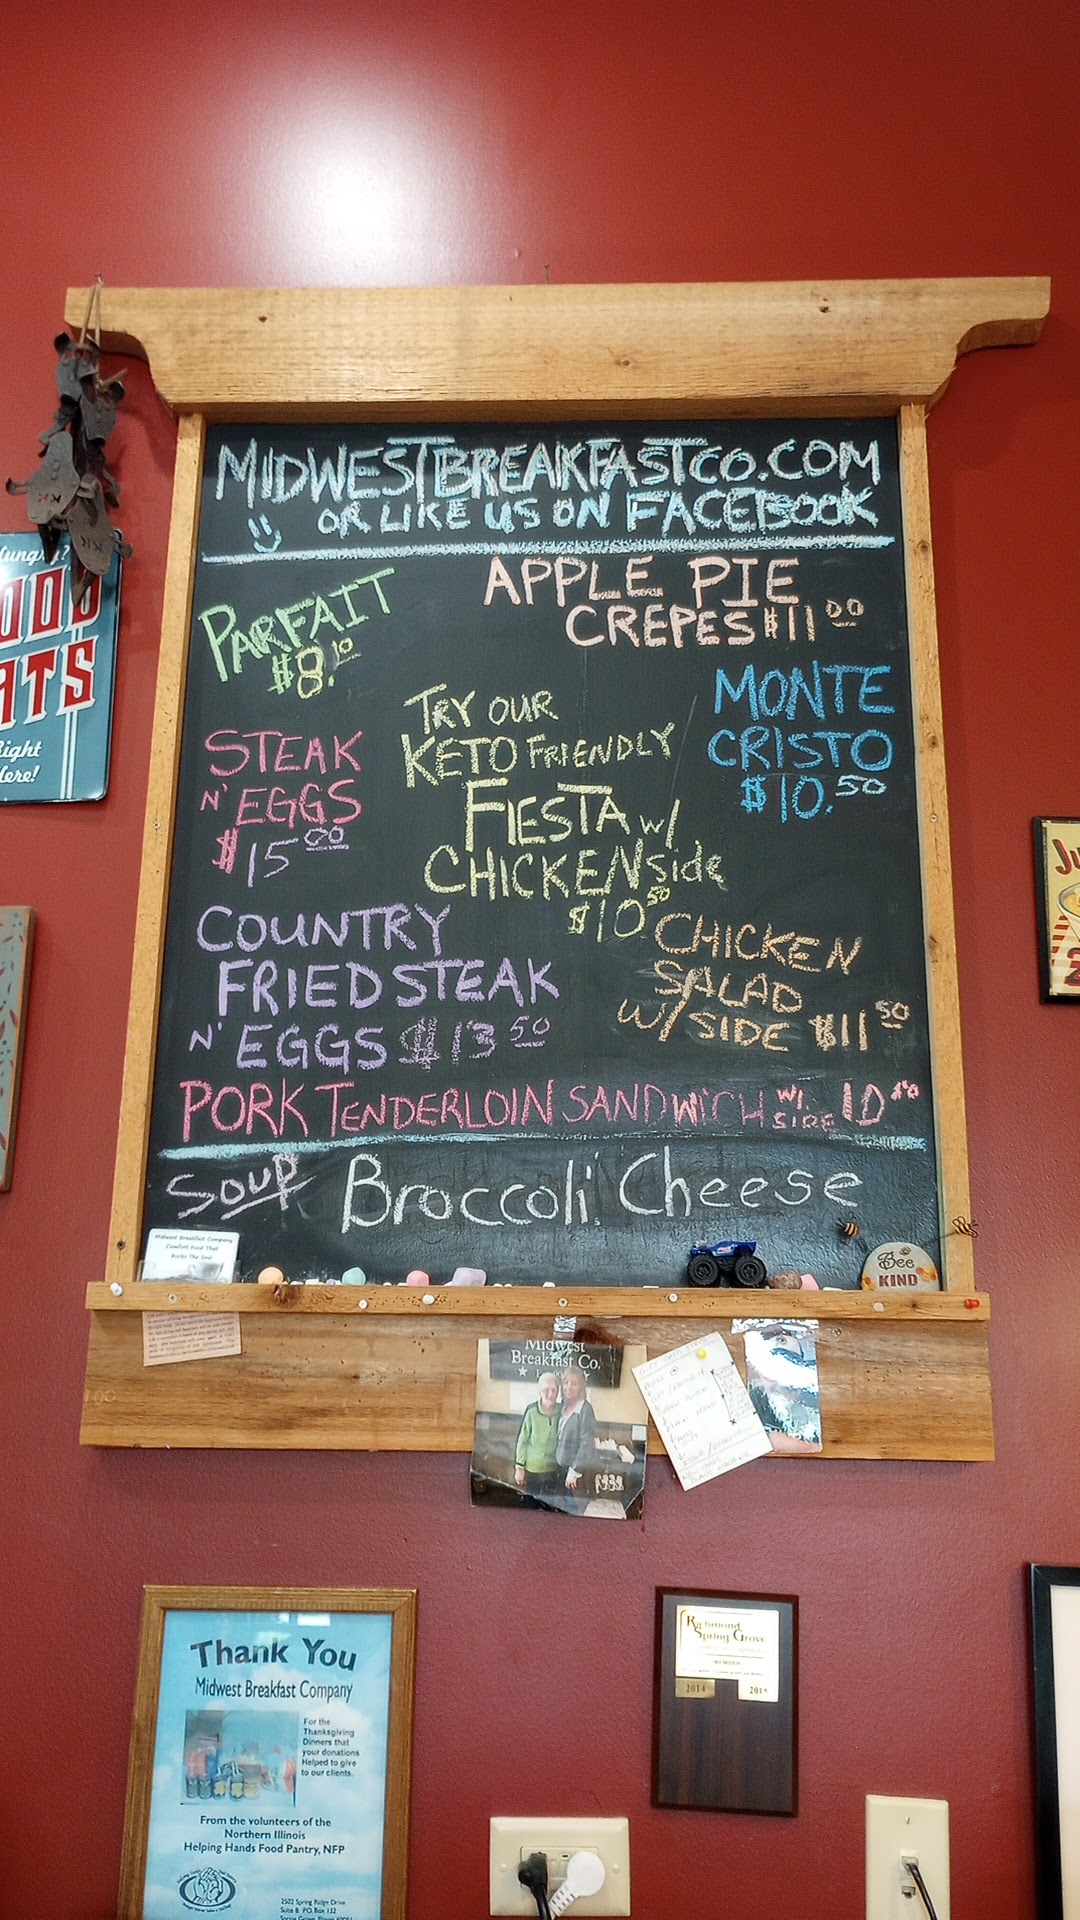 MIDWESTBREAKFASTCO.COM
OR LIKE US ON FACEBOOK
PARFAIT
$8.10
APPLE PIE
CREPES $11 00
STEAK
N' EGGS
$15 00
TRY OUR
KETO FRIENDLY
FIESTA W/
CHICKEN side
$10 50
MONTE
CRISTO
$10.50
COUNTRY
FRIED STEAK
N' EGGS $13 50
CHICKEN
SALAD
W/ SIDE $11 50
PORK TENDERLOIN SANDWICH W/ SIDE 10
SOUP Broccoli Cheese
Midwest Breakfast Company
Comfort Food That
Rocks The Soul
Bee
KIND
Hungry?
ATS
Right
Here!
Midwest
Breakfast Co.
Thank You
Midwest Breakfast Company
For the
Thanksgiving
Dinners that
your donations
Helped to give
to our clients.
From the volunteers of the
Northern Illinois
Helping Hands Food Pantry, NFP
2502 Spring Ridge Drive
Suite B P.O. Box 132
Richmond
Spring Grove
MEMBER
2014 2015